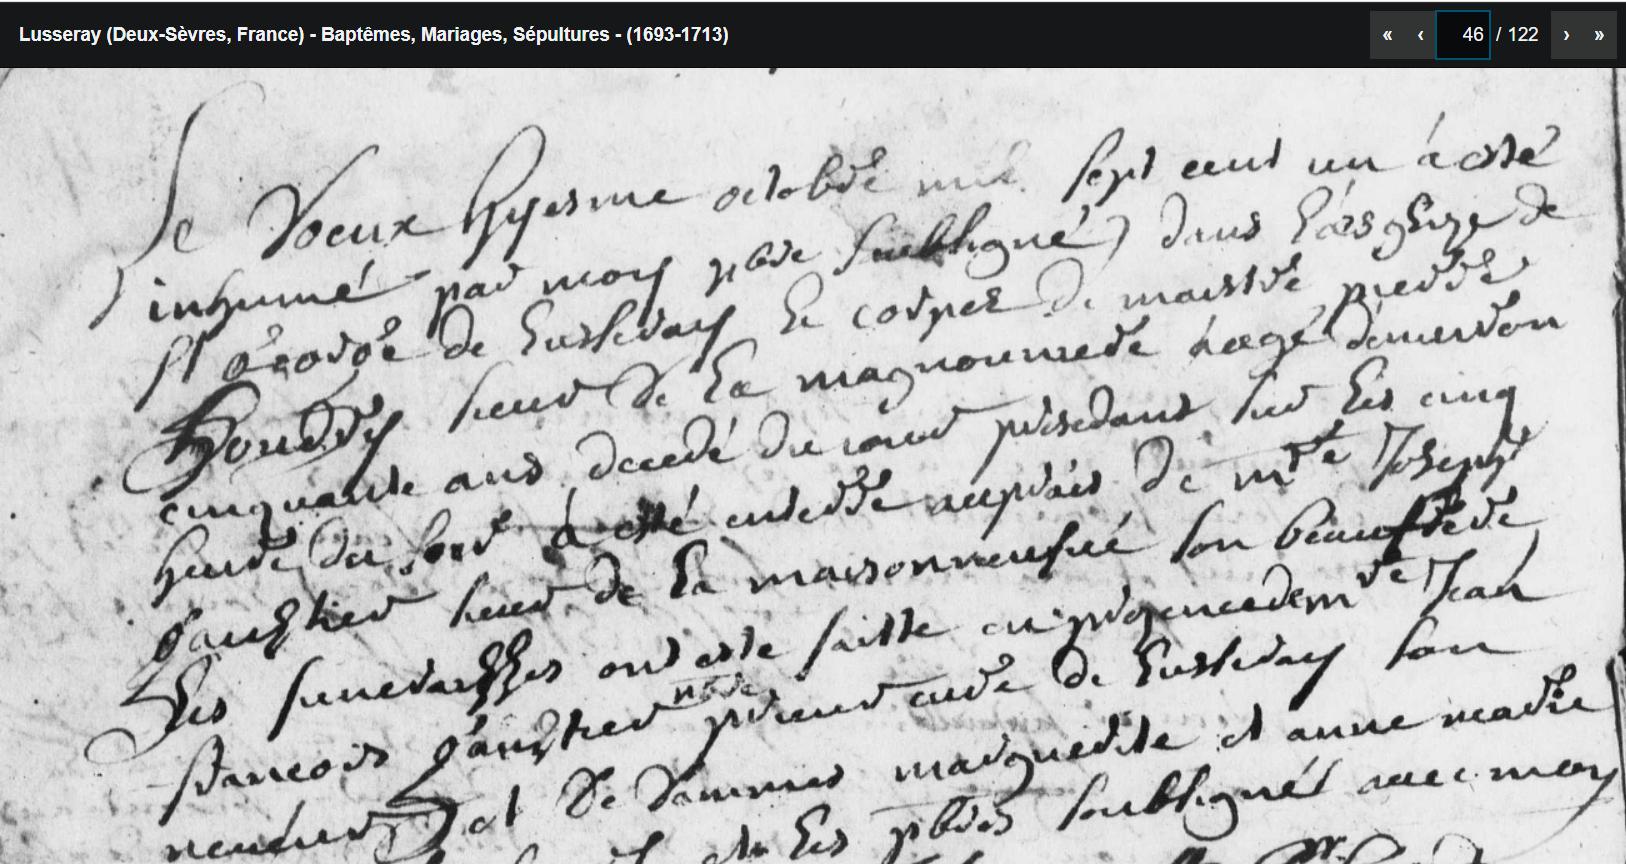 Lusseray (Deux-Sèvres, France) - Baptêmes, Mariages, Sépultures - (1693-1713)
« ‹ 46 / 122 › »
Le doeuxhyesme octobre mil sept cent un à esté
inhumé par moy pbre soubsigné dans l'esglize de
St George de Lusseray le corps de maistre pierre
sieur de la magnounerie aagé d'environ
cinquante ans decedé du jour presedant sur les cinq
heure du soir à esté enterre auprais de mre Joseph
gaultier sieur de la maisonneufve son beaufrere
Les funerailles ont esté faitte en presence de mre Jean
francois gaultier prieur curé de Lusseray son
nepveu et de dammes marguerite et anne marie
et les pbres soubsignés avec moy